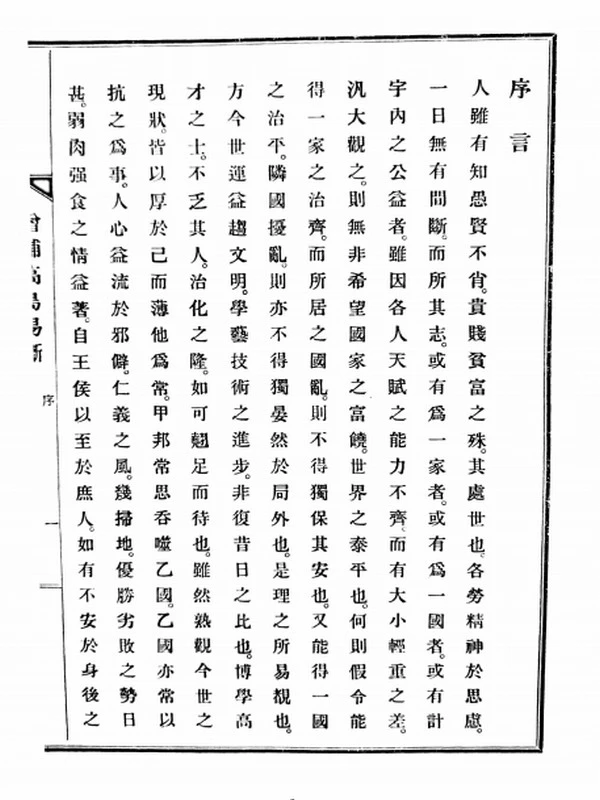 序言
人雖有知愚賢不肖。貴賤貧富之殊。其處世也。各勞精神於思慮。
一日無有間斷。而所其志。或有爲一家者。或有爲一國者。或有計
宇內之公益者。雖因各人天賦之能力不齊。而有大小輕重之差。
汎大觀之。則無非希望國家之富饒。世界之泰平也。何則假令能
得一家之治齊。而所居之國亂。則不得獨保其安也。又能得一國
之治平。隣國擾亂。則亦不得獨晏然於局外也。是理之所易覩也。
方今世運益趨文明。學藝技術之進步。非復昔日之比也。博學高
才之士。不乏其人。治化之隆。如可翹足而待也。雖然熟觀今世之
現狀。皆以厚於己而薄他爲常。甲邦常思吞噬乙國。乙國亦常以
抗之爲事。人心益流於邪僻。仁義之風。幾掃地。優勝劣敗之勢日
甚。弱肉强食之情益著。自王侯以至於庶人。如有不安於身後之
增補高島易斷
序
一